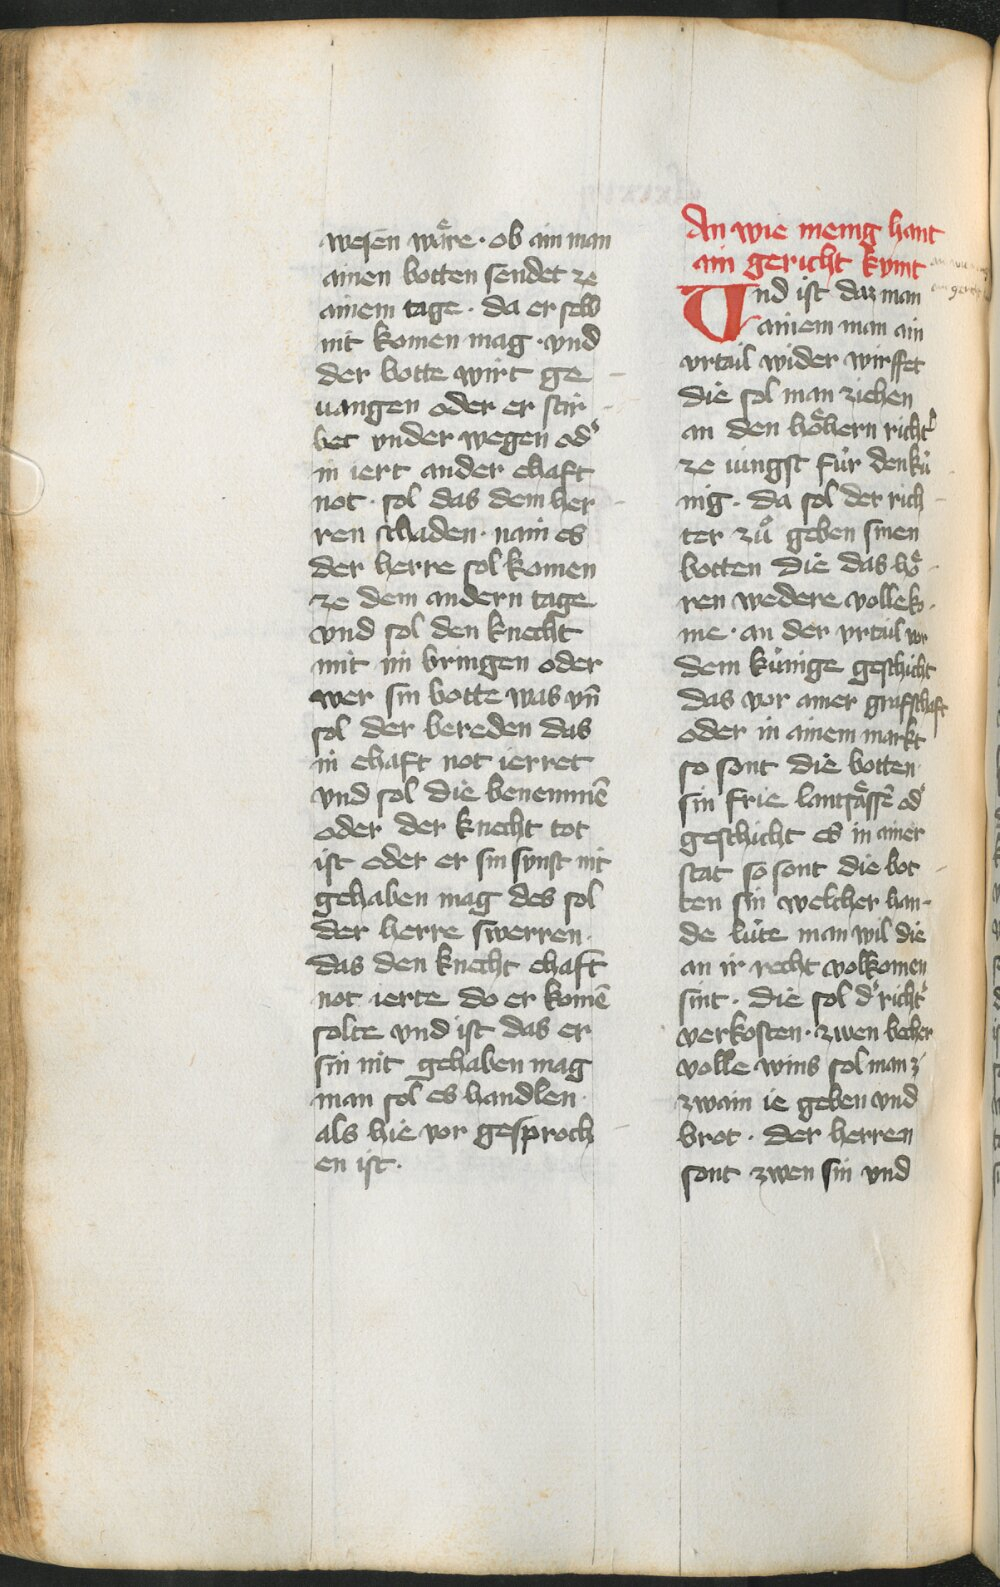 wesen waͤre · ob ain man
ainen botten sendet ze
ainem tage · da er selb
nit komen mag · vnd
der botte wirt ge
uangen oder er stir
bet vnder wegen od̉
in iert ander ehaft
not · sol das dem her
ren schaden · nain es
der herre sol komen
ze dem andern tage
vnd sol den knecht
mit im bringen oder
wer sin botte was vn̄
sol der bereden das
in ehaft not ierret
vnd sol die benemmē
oder der knecht tot
ist oder er sin synst nit
gehaben mag des sol
der herre swerren ·
das den knecht ehaft
not ierte do er komē
solte vnd ist das er
sin nit gehaben mag
man sol es handlen ·
als hie vor gesproch
en ist ·
An wie menig hant
ain gericht kvmt
Vnd ist daz man
ainem man ain
vrtail wider wirffet
die sol man ziehen
an den hoͤhern richt̉
ze iungst fúr den kú
nig · da sol der rich
ter zuͦ geben sinen
botten die das hoͤ
ren wedere vollek
me · an der vrtail vor
dem kúnige geschicht
das vor ainer grafschaft
oder in ainem markt
so sont die botten
sin frie lantsaͤssē od̉
geschicht es in ainer
stat so sont die bot
ten sin welcher han
de lúte man wil die
an ir recht volkomen
sint · die sol d̉ richt̉
verkosten · zwen becher
volle wins sol man z
zwain ie geben vnd
brot · der herren
sont zwen sin vnd